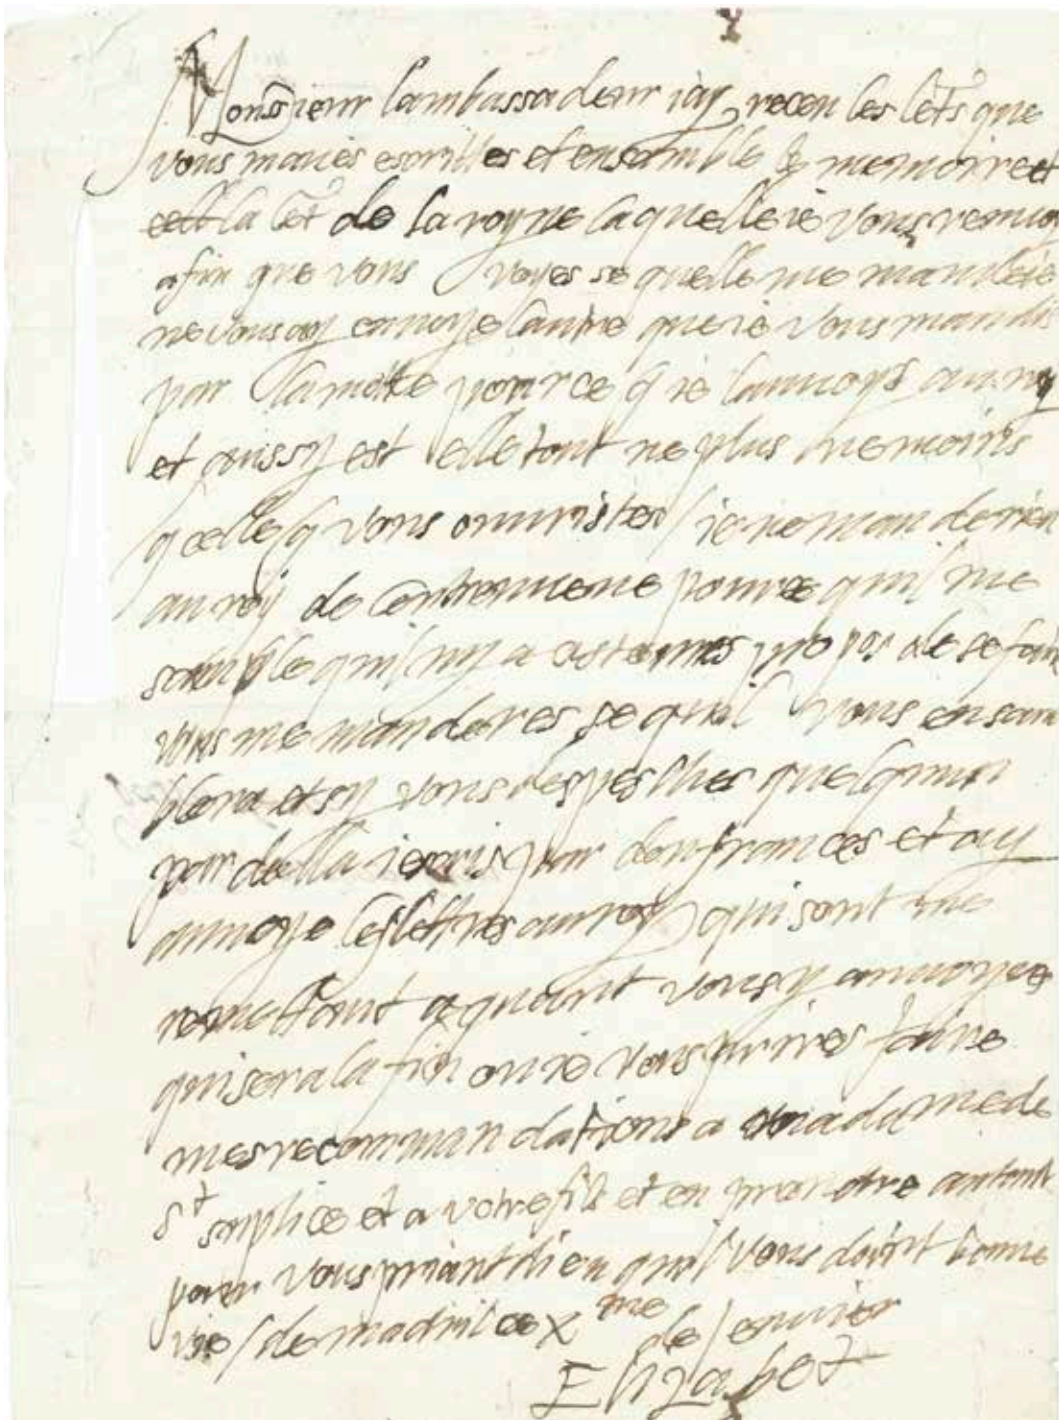 Monsieur lambassadeur iay receu les letr que
vous maves escrittes et ensamble le memoire et
la let de la royne laquelle ie vous renvoy
afin que vous voyes se quelle me mande ie
ne vous ay envoye lautre que ie vous mandis
par lamotte pour ce q ie lanvoys au roy
et aussy est elle tout ne plus ne moins
q celle q vous ouvristes / ie ne mande rien
au roy de lentreveue pource quil me
samble quil ny a propos de se faire
vous me manderes se quil vous en sam
blera et sy vous despeches quelqun
par della iescris par don frances et ay
anvoye les lettres au roy qui sont
remettant a quant vous y anvoyres
qui sera la fin ou ie vous prires faire
mes recommandations a madame de
St suplice et a votre fils et en prandre autant
pour vous priant dieu quil vous doint bonne
vie / de madril ce x me de Janvier
Elizabet